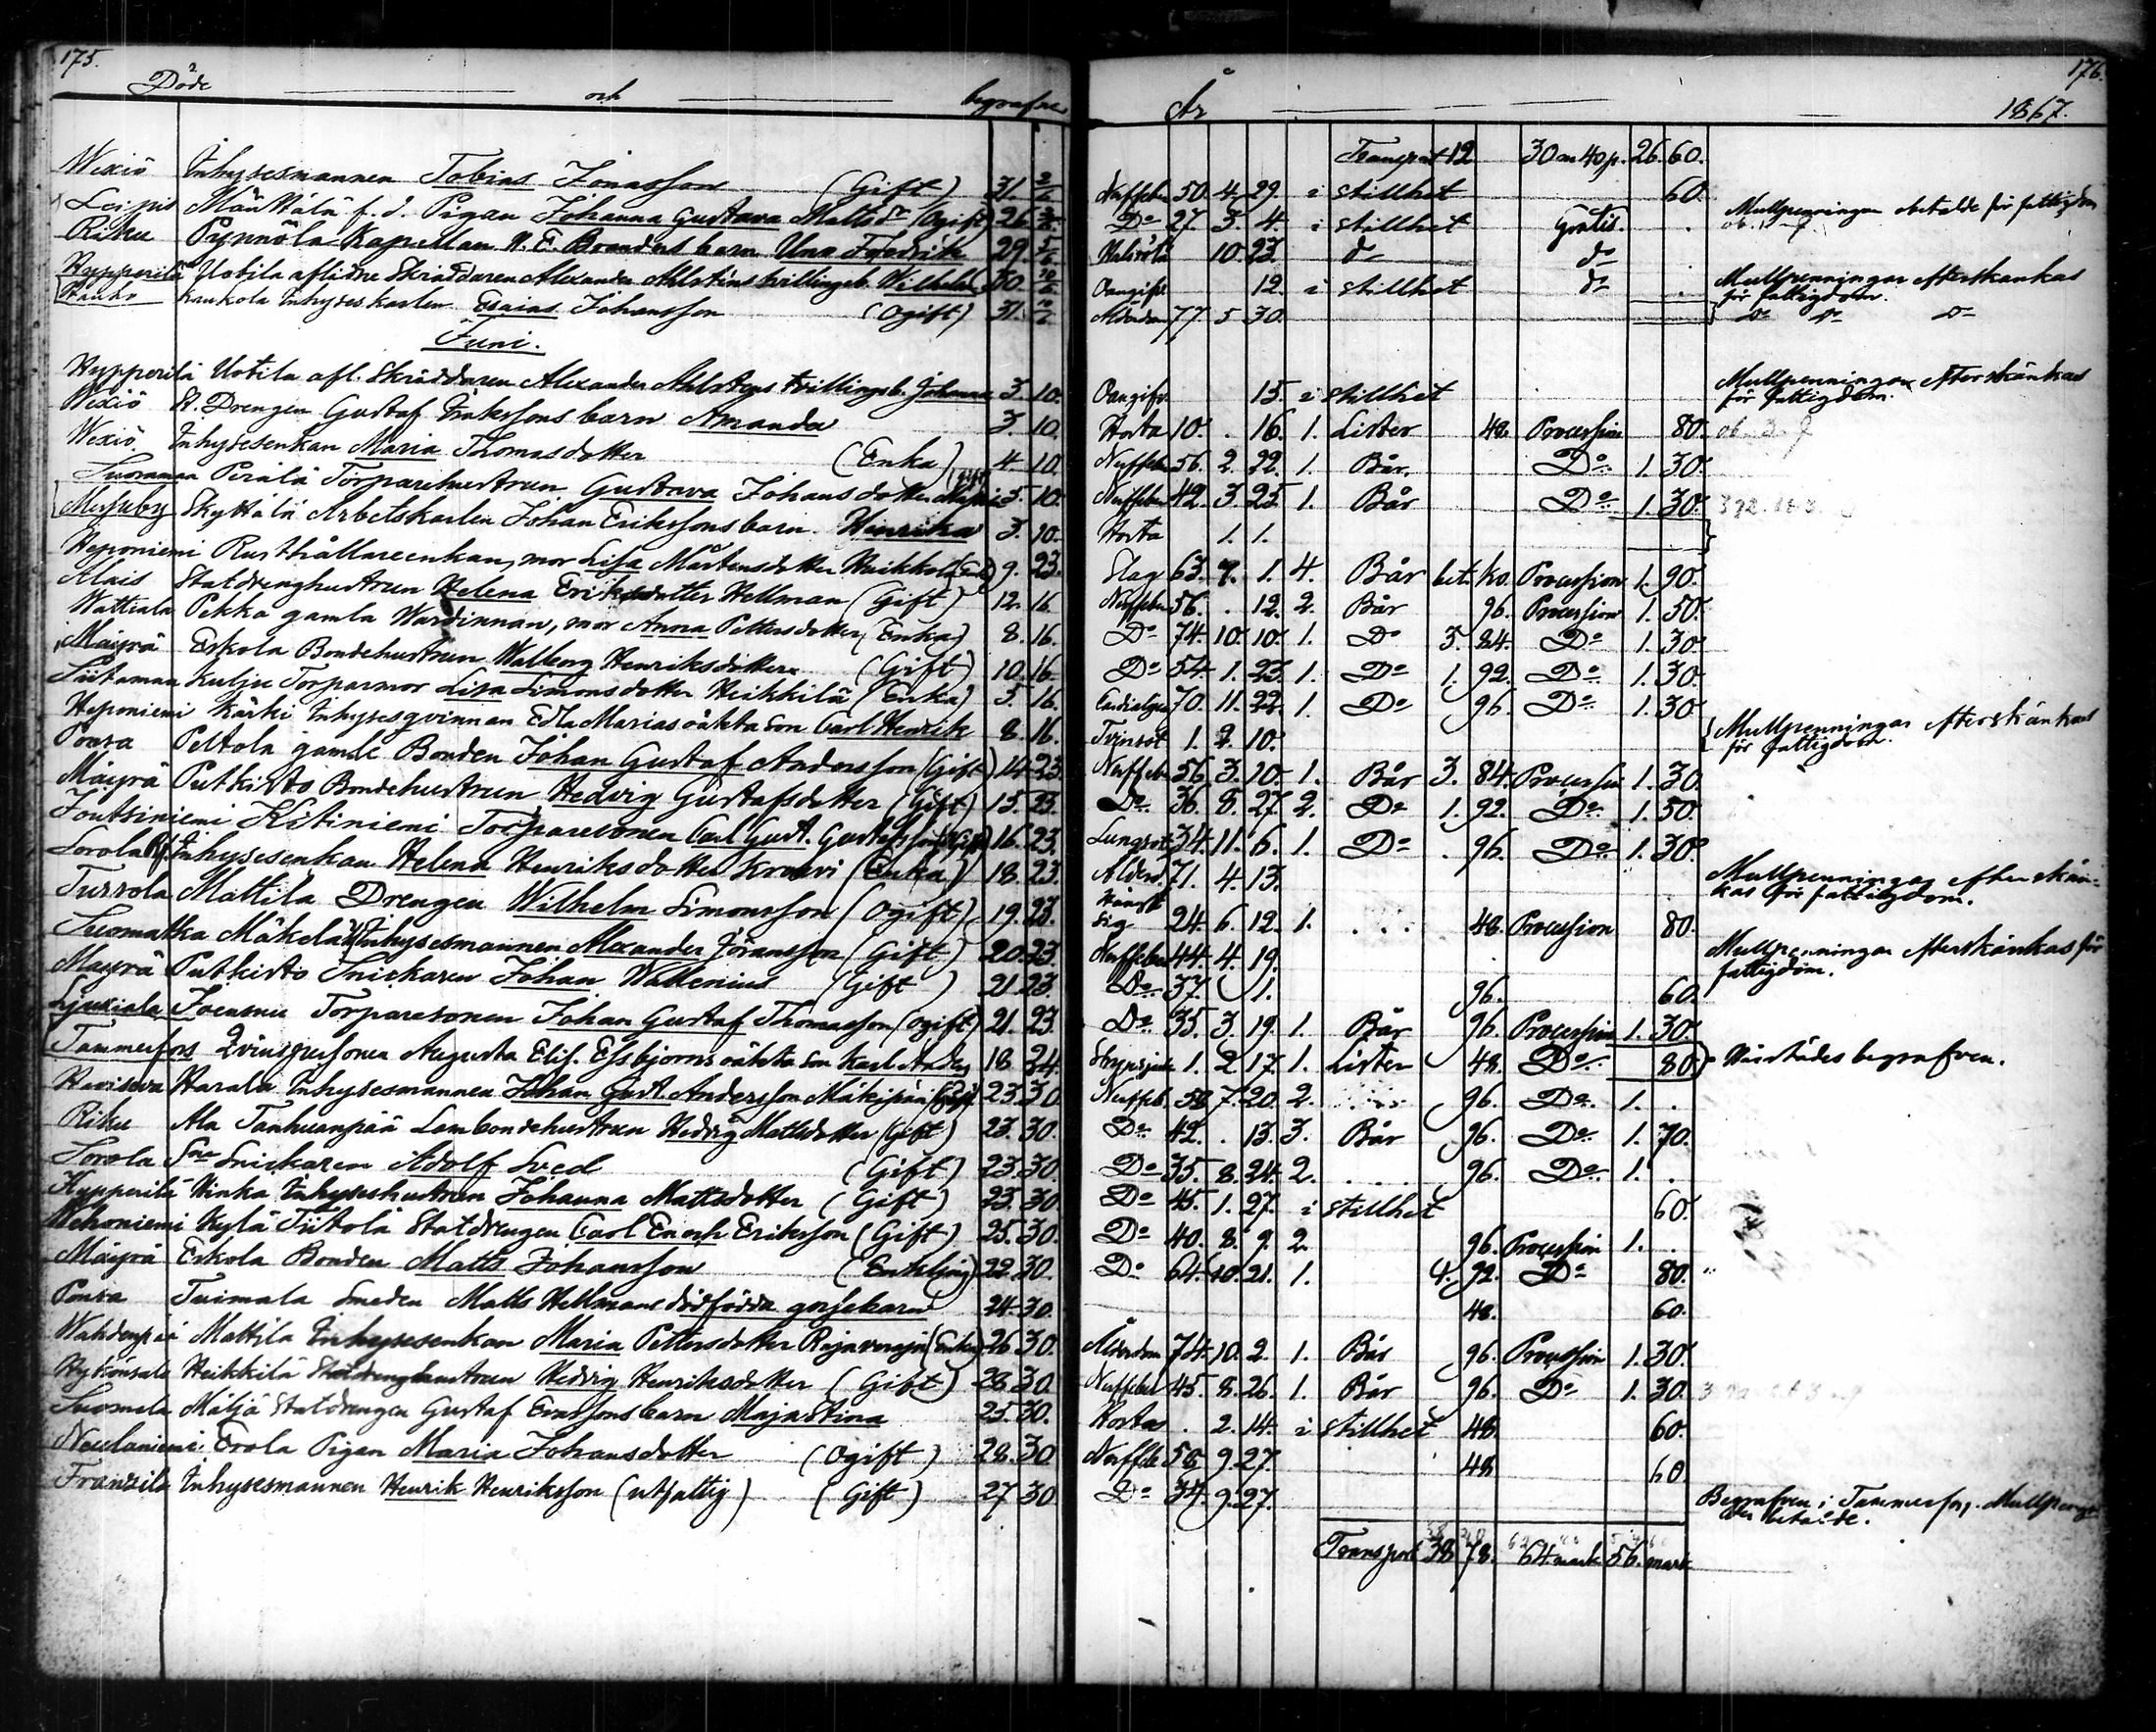 175.
Döde och begrafne
Wexiö Inhysesmannen Tobias Jonasson (Gift) 31. 2/6
Leipis Mänttälä f. d. Pigan Johanna Gustava Matts Dr (Ogift) 26. 3/6
Riku Pynnölä Kapellan barn Uno Fredrik 29. 5/6
Hypperilä Uotila aflidne Skräddaren Alexander Ahlsténs tvillingsb. Wilhelm 30. 10/6
Kaukola Inhyses karlen Esaias Johansson (Ogift) 31.
Juni.
Hypperilä Uotila afl. Skräddaren Alexander Ahlstens tvillingsb. Johanna 3. 10.
Wexiö St. Drengen Gustaf Erikssons barn Amanda 3. 10.
Wexiö Inhysesenkan Maria Thomasdotter (Enka) 4. 10.
Suoramaa Perälä Torparehustrun Gustava Johansdotter 5. 10.
Skyttälä Arbetskarlen Johan Erikssons barn Henrika 3. 10.
Heponiemi Rusthållareenkan, mor Lisa Mårtensdotter Heikkola (Enka) 9. 23.
Alais Statdrenghustrun Helena Eriksdotter Hellman (Gift) 12. 16.
Wattiala Pekka gamla Wärdinnan, mor Anna Pettersdotter (Enka) 8. 16.
Mäyrä Eskola Bondehustrun Walborg Henriksdotter (Gift) 10. 16.
Siitamaa Kulju Torparmor Lisa Simonsdotter Heikkilä (Enka) 5. 16.
Heponiemi Kärki Inhysesqvinnan Edla Marias oäkta son Carl Henrik 8. 16.
Peltola gamle Bonden Johan Gustaf Andersson (Gift) 14. 23.
Mäyrä Putkisto Bondehustrun Hedvig Gustafsdotter (Gift) 15. 23.
Joutsiniemi Kitiniemi Torparesonen Carl Gust. Gustafsson 16. 23.
Sorola Inhysesenkan Helena Henriksdotter Krouvi (Enka) 18. 23.
Tursola Mattila Drengen Wilhelm Simonsson (Ogift) 19. 23.
Suomatka Mäkelä Inhysesmannen Alexander Göransson (Gift) 20. 23.
Mäyrä Putkisto Snickaren Johan Wallenius (Gift) 21. 23.
Liuksiala Joensuu Torparesonen Johan Gustaf Thomasson (Ogift) 21. 23.
Tammerfors Qvinspersonen Augusta Elis. Essbjörns oäkta son Karl 18. 24.
Haviseva Harala Inhysesmannen Johan Gust. Andersson Mäkipää (Gift) 23. 30.
Riku Ala Tanhuanpää Lambondehustrun Hedvig Mattsdotter (Gift) 23. 30.
Sorola Snickaren Adolf Sved (Gift) 23. 30.
Hypperilä Ninka Inhyseshustrun Johanna Mattsdotter (Gift) 23. 30.
Wehoniemi Kylä Tiitola Statdrengen Carl Enoch Eriksson (Gift) 25. 30.
Mäyrä Eskola Bonden Matts Johansson (Enkling) 22. 30.
Tuimala Smeden Matts Hellmans dödfödda gossebarn 24. 30.
Wahdenpää Mattila Inhysesenkan Maria Pettersdotter (Enka) 26. 30.
Heikkilä Statdrenghustrun Hedvig Henriksdotter (Gift) 28. 30.
Suomela Mäljä Statdrengen Gustaf barn Maja Stina 25. 30.
Neulaniemi Erola Pigan Maria Johansdotter (Ogift) 28. 30
Franzila Inhysesmannen Henrik Henriksson (utfattig) (Gift) 27. 30
176.
År 1867.
Transport 12 30 m 40 p. 26. 60.
Nerffeber 50. 4. 29. i stillhet 60.
Do 27. 3. 4. i stillhet Gratis. Mullpenningar obetalde för fattigdom
10. 23. do do
Oangifv. 12. i stillhet do Mullpenningar efterskänkas för fattigdom.
Ålderdom 77. 5. 30. Do Do Do
Oangifv. 15. i stillhet Mullpenningar efterskänkas för fattigdom.
Hosta 10. . 16. 1. Lister 48. Procession 80.
Nerffeber 56. 2. 22. 1. Bår. Do 1. 30.
Nerffeber 42. 3. 25. 1. Bår Do 1. 30.
Hosta 1. 1.
Slag 63. 7. 1. 4. Bår bet. ko. Procession 1. 90.
Nerffeber 56. . 12. 2. Bår 96. Procession 1. 50.
Do 74. 10. 10. 1. Do 3. 84. Do 1. 30.
Do 54. 1. 23. 1. Do 1. 92. Do 1. 30.
70. 11. 22. 1. Do 96. Do 1. 30.
Tvinsot 1. 2. 10. Mullpenningar efterskänkas för fattigdom.
Nerffeber 56. 3. 10. 1. Bår 3. 84. Procession 1. 30.
Do 36. 8. 27. 2. Do 1. 92. Do 1. 50.
Lungsot 34. 11. 6. 1. Do . 96. Do 1. 30.
Ålderd. 71. 4. 13. Mullpenningar efterskänkas för fattigdom.
Hängt sig 24. 6. 12. 1. 48. Procession 80.
Nerffeber 44. 4. 19. Mullpenningar efterskänkas för fattigdom.
Do 37. 1. 96. 60.
Do 35. 3. 19. 1. Bår 96. Procession 1. 30.
1. 2. 17. 1. Lister 48. Do 80. Härstädes begrafven.
Nerffeb. 58. 7. 20. 2. 96. Do 1. .
Do 42. . 13. 3. Bår 96. Do 1. 70.
Do 35. 8. 24. 2. 96. Do 1. .
Do 45. 1. 27. i stillhet 60.
Do 40. 8. 9. 2. 96. Procession 1. .
Do 64. 10. 21. 1. 4. 92. Do 80.
48. 60.
Ålderdom 74. 10. 2. 1. Bår 96. Procession 1. 30.
Nerffeber 45. 8. 26. 1. Bår 96. Do 1. 30.
Hosta . 2. 14. i stillhet 48. 60.
Nerffeb 58. 9. 27. 48 60.
Do 34. 9. 27. Begrafven i Tammerfors. Mullpengar der betalde.
Transport 38 78. 64 mark 56. mark